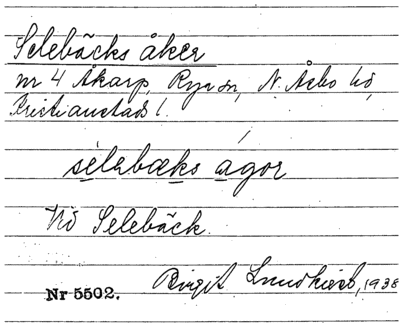 Selebäcks åker
nr 4 Åkarp, Rya sn, N. Åsbo hd,
Kristianstads l.
sèlabæks ágor
Nö Selebäck.
Birgit Lundkvist, 1938
Nr 5502.